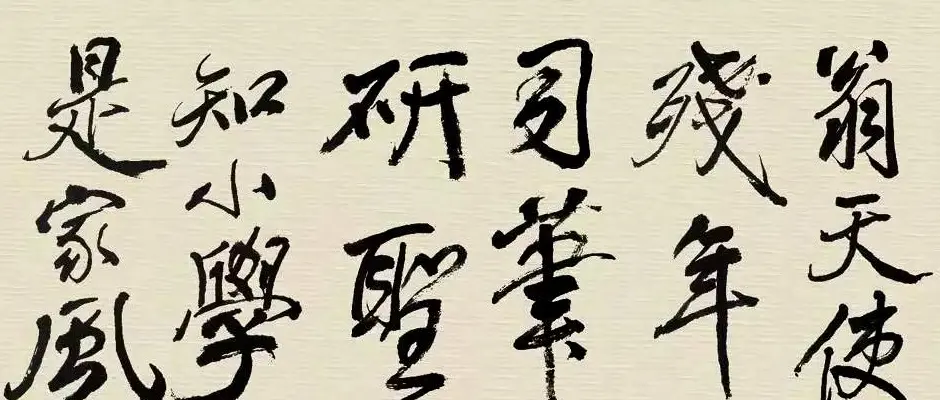 翁天使
残年
司筆
研聖
知小學
是家風